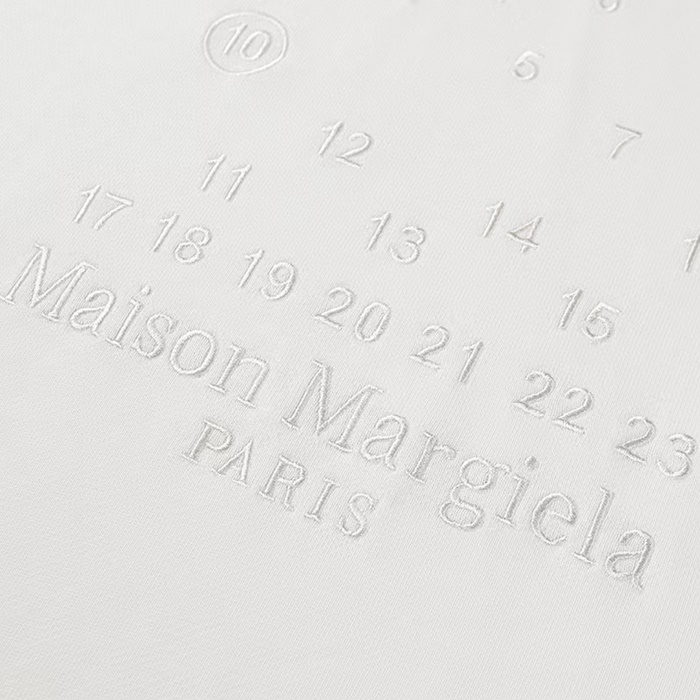 10 5
7
11 12
13 14 15
17 18 19 20 21 22 23
Maison Margiela
PARIS